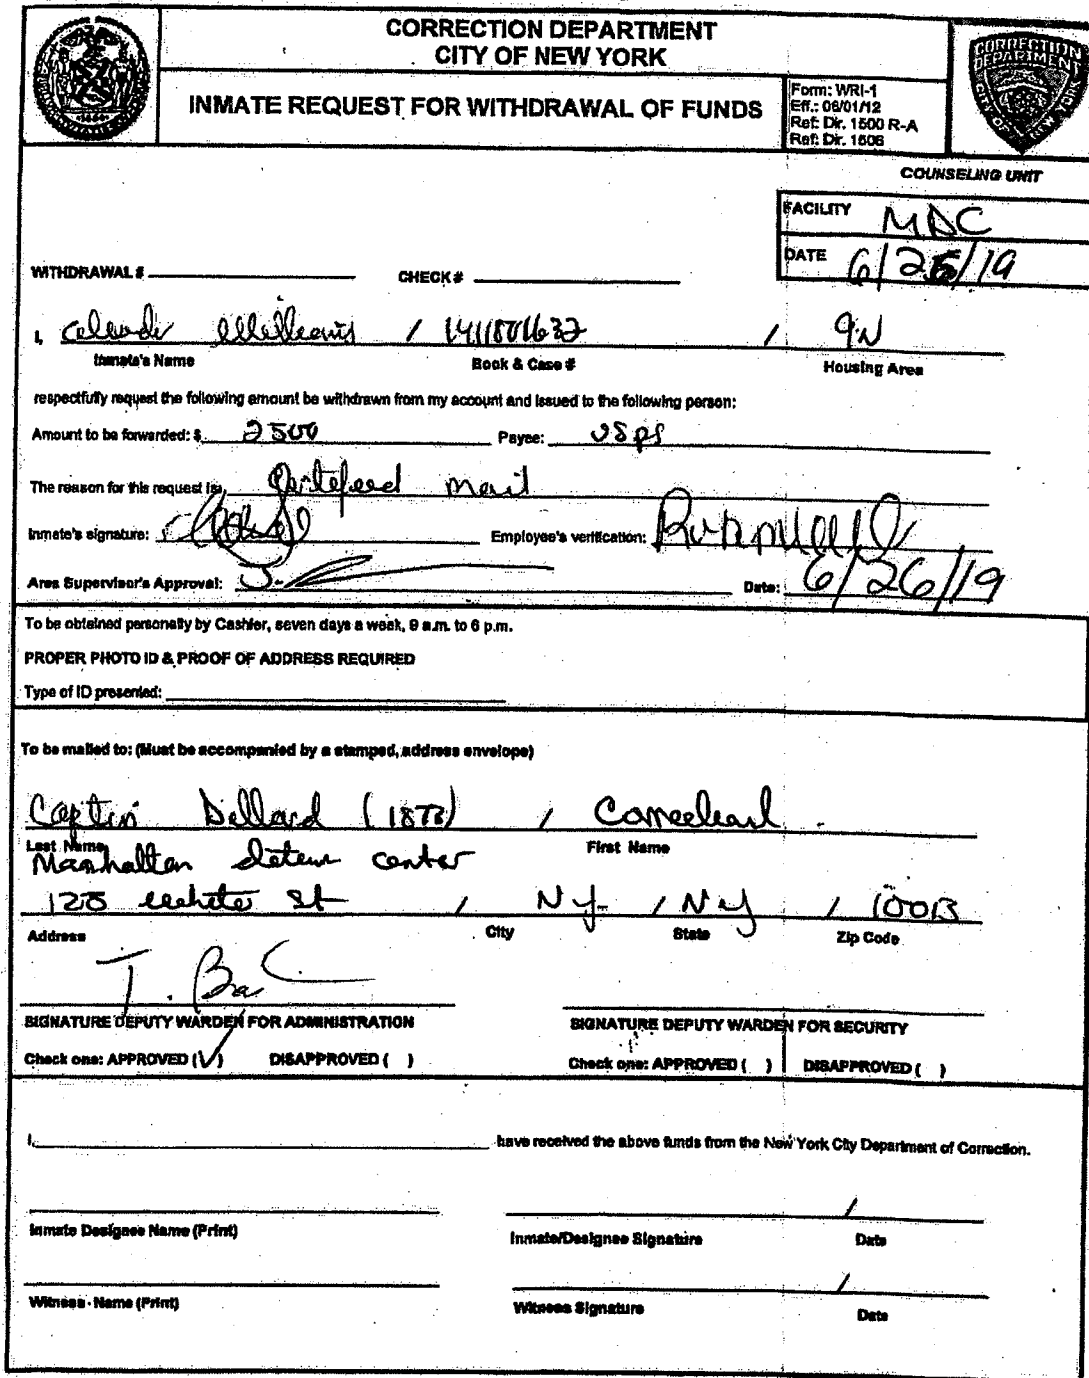 CORRECTION DEPARTMENT
CITY OF NEW YORK
INMATE REQUEST FOR WITHDRAWAL OF FUNDS
Form: WRI-1
Eff.: 06/01/12
Ref: Dir. 1500 R-A
Ref: Dir. 1506
CORRECTION
DEPARTMENT
CITY OF NEW YORK
COUNSELING UNIT
FACILITY MDC
DATE 6/25/19
WITHDRAWAL # CHECK #
I, / / 9N
Inmate's Name Book & Case # Housing Area
respectfully request the following amount be withdrawn from my account and issued to the following person:
Amount to be forwarded: $ 2500 Payee: USps
The reason for this request is: mail
Inmate's signature: Employee's verification:
Area Supervisor's Approval: Date: 6/26/19
To be obtained personally by Cashier, seven days a week, 9 a.m. to 6 p.m.
PROPER PHOTO ID & PROOF OF ADDRESS REQUIRED
Type of ID presented:
To be mailed to: (Must be accompanied by a stamped, address envelope)
Captin Dellard /
Last Name First Name
Manhatten center
125 st / Ny / Ny / 10013
Address City State Zip Code
SIGNATURE DEPUTY WARDEN FOR ADMINISTRATION SIGNATURE DEPUTY WARDEN FOR SECURITY
Check one: APPROVED (✓) DISAPPROVED ( ) Check one: APPROVED ( ) DISAPPROVED ( )
I, have received the above funds from the New York City Department of Correction.
/
Inmate Designee Name (Print) Inmate/Designee Signature Date
/
Witness - Name (Print) Witness Signature Date